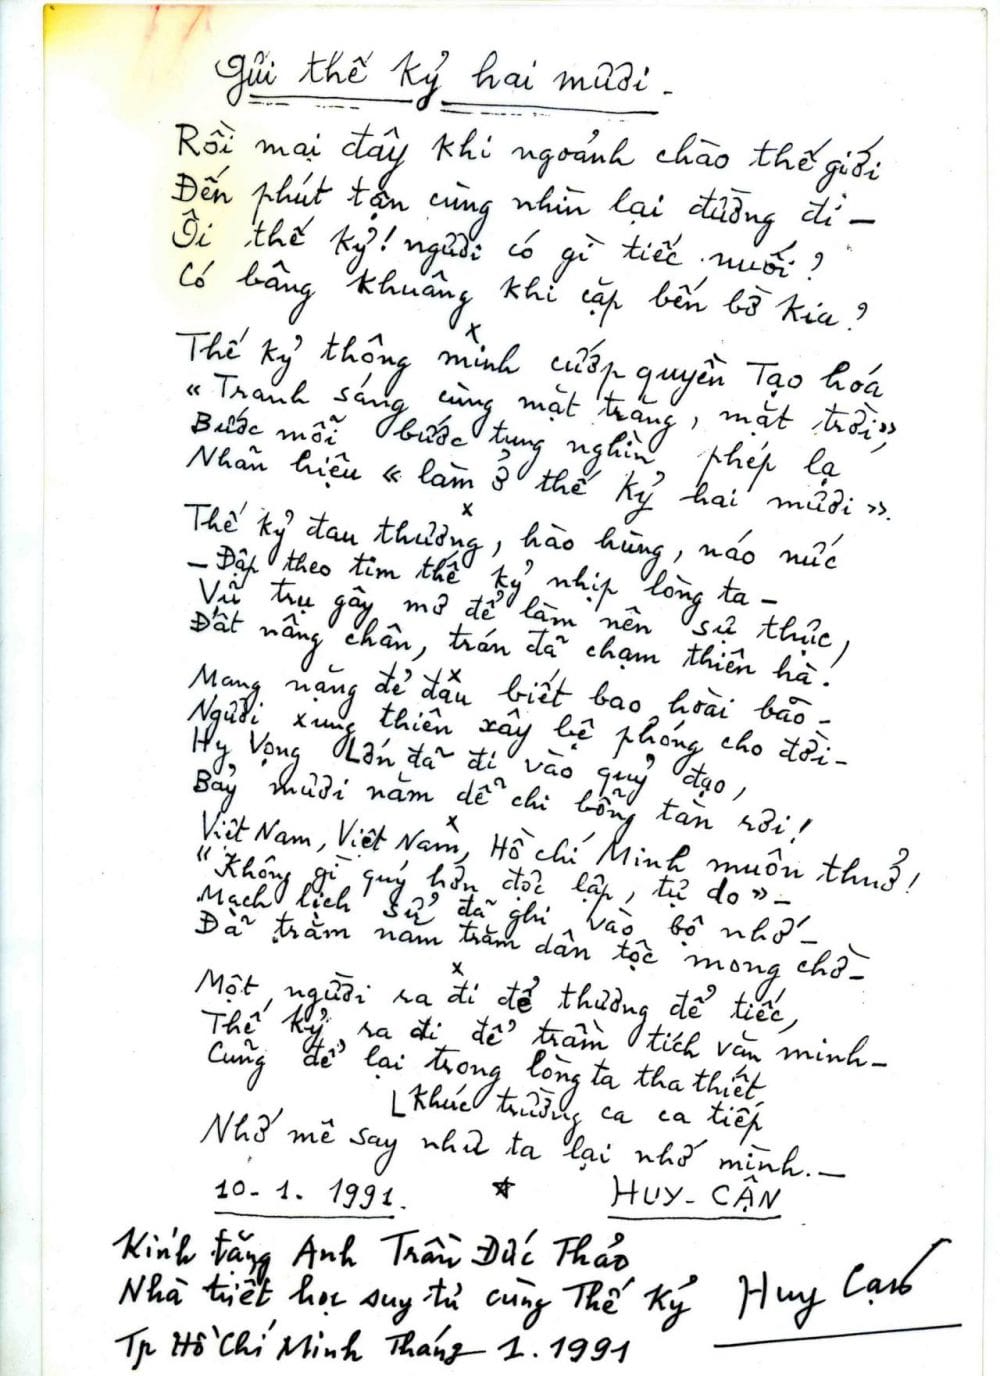 Gửi thế kỷ hai mươi -
Rồi mai đây khi ngoảnh chào thế giới
Đến phút tận cùng nhìn lại đường đi -
Ôi thế kỷ! người có gì tiếc nuối?
Có bâng khuâng khi cặp bến bờ kia?
x
Thế kỷ thông minh cướp quyền Tạo hóa
« Tranh sáng cùng mặt trăng, mặt trời »,
Bước mỗi bước tung nghìn phép lạ
Nhãn hiệu « làm ở thế kỷ hai mươi ».
x
Thế kỷ đau thương, hào hùng, náo nức
- Đập theo tim thế kỷ nhịp lòng ta -
Vũ trụ gây mơ để làm nên sự thực,
Đất nâng chân, trán đã chạm thiên hà!
x
Mang nặng đẻ đau biết bao hoài bão -
Người xung thiên xây bệ phóng cho đời -
Hy Vọng Lớn đã đi vào quỹ đạo,
Bảy mươi năm dễ chi bỗng tàn rơi!
x
Việt Nam, Việt Nam, Hồ Chí Minh muôn thuở!
" Không gì quý hơn độc lập, tự do » -
Mạch lịch sử đã ghi vào bộ nhớ -
Đã trăm năm trăm dân tộc mong chờ -
x
Một người ra đi để thương để tiếc,
Thế kỷ ra đi để trầm tích văn minh -
Cũng để lại trong lòng ta tha thiết
Khúc trường ca ca tiếp
Nhớ mê say như ta lại nhớ mình. -
10-1. 1991. HUY-CẬN
Kính tặng Anh Trần Đức Thảo
Nhà triết học suy tư cùng Thế Kỷ
Huy Cận
Tp Hồ Chí Minh Tháng 1.1991